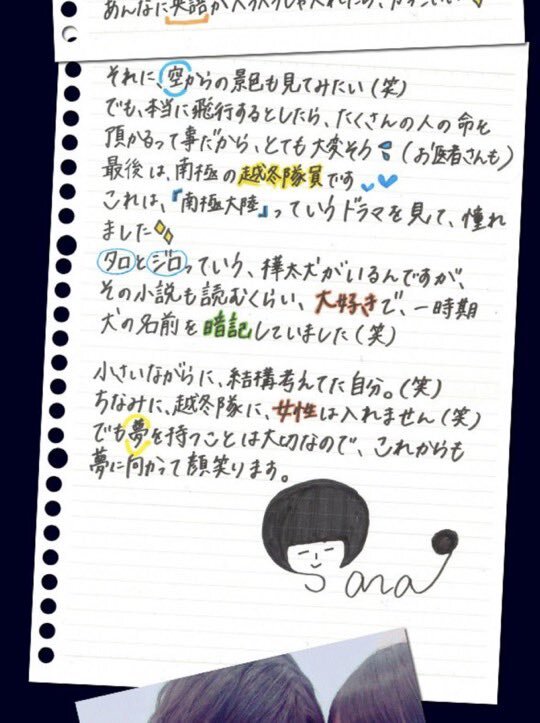 あんなに英語が
それに、空からの景色も見てみたい(笑)
でも、本当に飛行するとしたら、たくさんの人の命を
預かるって事だから、とても大変そう(お医者さんも)
最後は、南極の越冬隊員です
これは、『南極大陸』っていうドラマを見て、憧れ
ました
タロとジロっていう、樺太犬がいるんですが、
その小説も読むくらい、大好きで、一時期
犬の名前を暗記していました(笑)
小さいながらに、結構考えてた自分。(笑)
ちなみに、越冬隊に、女性は入れません(笑)
でも夢を持つことは大切なので、これからも
夢に向かって顔笑ります。
Sana